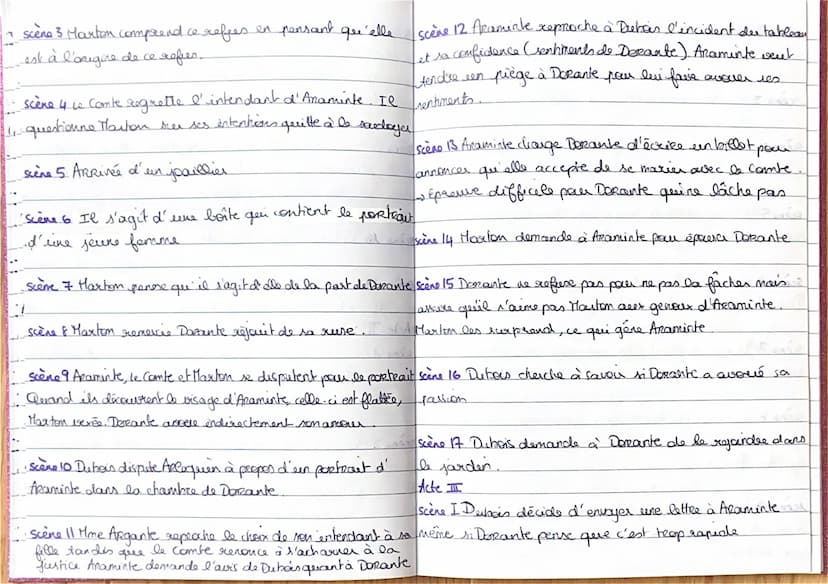 scène 3 Marton comprend ce refus en pensant qu'elle
est à l'origine de ce refus.
scène 4 Le Comte regrette l'intendant d'Araminte. Il
questionne Marton sur ses intentions quitte à le soudoyer
scène 5 Arrivée d'un joaillier
scène 6 Il s'agit d'une boîte qui contient le portrait
d'une jeune femme
scène 7 Marton pense qu'il s'agit d'elle de la part de Dorante
scène 8 Marton remercie Dorante réjouit de sa ruse.
scène 9 Araminte, le Comte et Marton se disputent pour le portrait
Quand ils découvrent le visage d'Araminte, celle-ci est flattée,
Marton vexée. Dorante avoue indirectement son amour.
scène 10 Dubois dispute Arlequin à propos d'un portrait d'
Araminte dans la chambre de Dorante.
scène 11 Mme Argante reproche le choix de son intendant à sa
fille tandis que le Comte renonce à s'acharner à la
justice Araminte demande l'avis de Dubois quant à Dorante
scène 12 Araminte reproche à Dubois l'incident du tableau
et sa confidence (sentiments de Dorante). Araminte veut
tendre un piège à Dorante pour lui faire avouer ses
sentiments.
scène 13 Araminte charge Dorante d'écrire un billet pour
annoncer qu'elle accepte de se marier avec le Comte.
→ Epreuve difficile pour Dorante qui ne lâche pas
scène 14 Marton demande à Araminte pour épouser Dorante
scène 15 Dorante ne refuse pas pour ne pas la fâcher mais
assure qu'il n'aime pas Marton aux genoux d'Araminte.
Marton les surprend, ce qui gêne Araminte.
scène 16 Dubois cherche à savoir si Dorante a avoué sa
passion
scène 17 Dubois demande à Dorante de le rejoindre dans
le jardin.
Acte III
scène I Dubois décide d'envoyer une lettre à Araminte
même si Dorante pense que c'est trop rapide